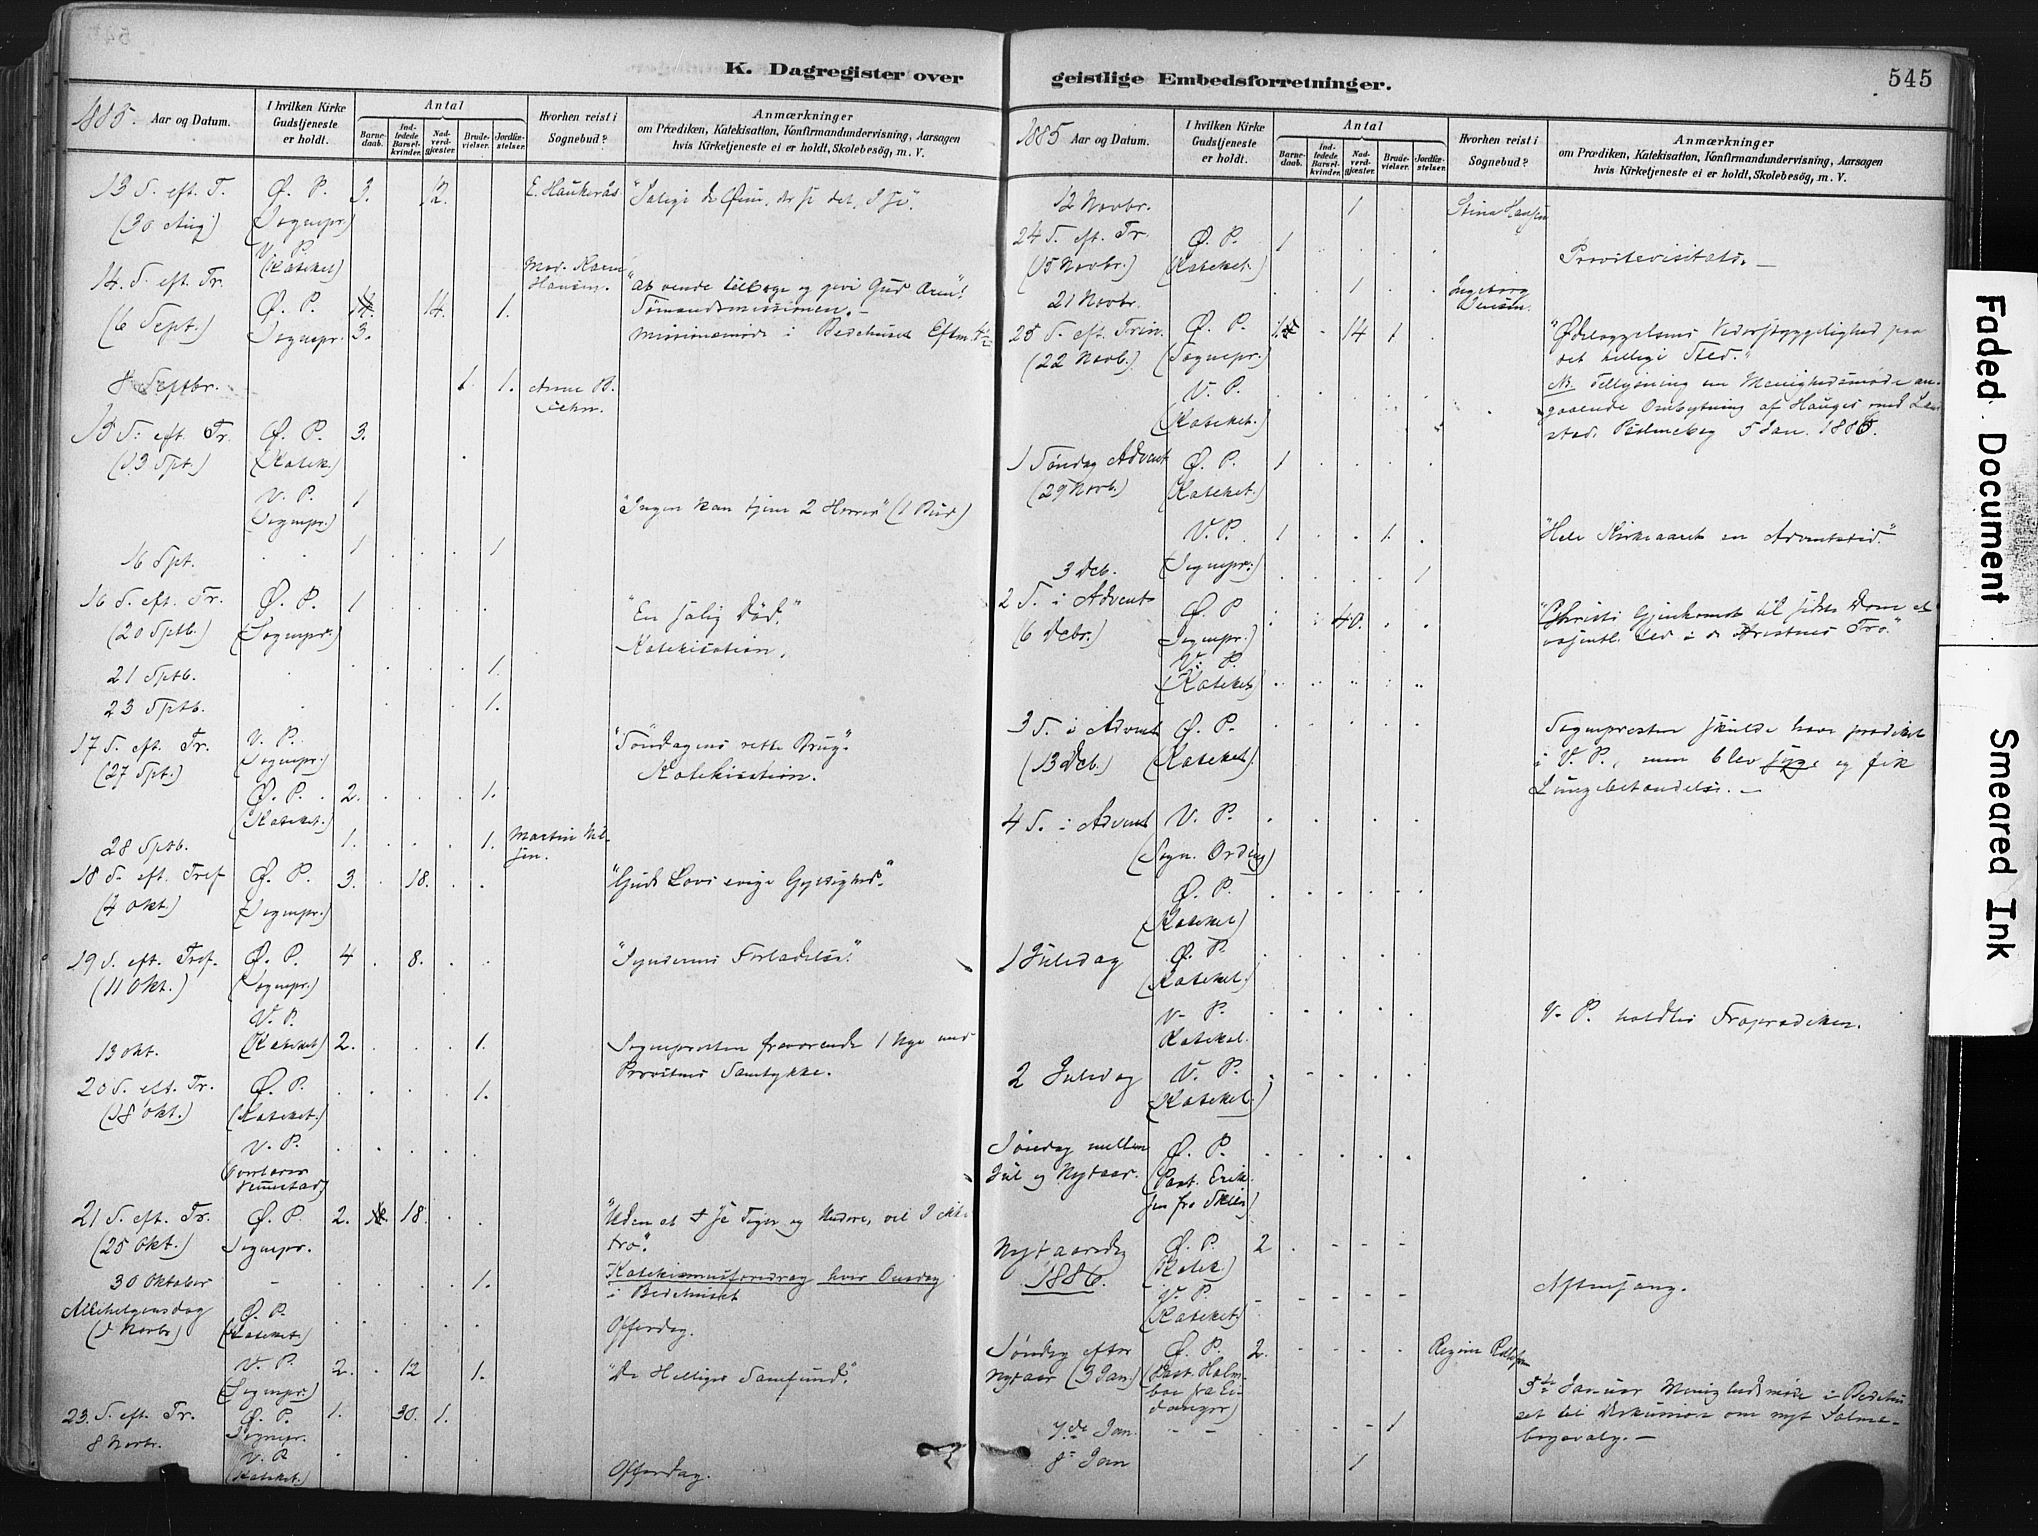 K. Dagregister over geistlige Embedsforretninger.
545
1885. Aar og Datum.
I hvilken Kirke Gudstjeneste er holdt.
Antal
Barnedaab.
Indledede Barselkvinder.
Nadverdgjæster.
Brudevielser.
Jordfæstelser.
Hvorhen reist i Sognebud?
Anmærkninger
om Prædiken, Katekisation, Konfirmandundervisning, Aarsagen
hvis Kirketjeneste ei er holdt, Skolebesøg, m. V.
13 S. eft. T. Ø. P. 3. 12. E. Haukerås "Salige de Øine, der se det, I se".
(30 Aug) (Sognepr)
V. P.
(Kateket)
14. S. eft. Tr. Hansen. "at vende tilbage og give Gud Æren".
(6 Sept.) Ø. P. 14. 1. Sømandsmissionen.-
Sognepr. 3. Missionsmøde i Bedehuset Eftm.
8 Septbr. 1. 1. Anne B.
15 S. eft. Tr. Ø. P. 3.
(13 Spt.) (Katek.)
V. P. 1
(Sognepr.) "Ingen kan tjene 2 Herrer" (1 Bud)
16 Spt. 1 1
16 S. eft. Tr. Ø. P. 1 "En salig Død."
(20 Sptb.) (Sognepr.) Katekisation.
21 Sptb. 1.
23 Sptb. 1.
17 S. eft. Tr. V. P. "Søndagens rette Brug".
(27 Spt.) (Sognepr.) Katekisation.
Ø. P. 2. 1.
(Kateket.)
28 Sptb. 1. 1. Martin Nilsen.
18 S. eft. Tref Ø. P. 3. 18. "Guds Lovs evige Gyldighed".
(4 Okt.) (Sognepr.)
19 S. eft. Tref. Ø. P. 4 8. "Syndernes Forladelse".
(11 Okt.) (Sognepr.)
V. P.
13 Okt. (Kateket) 2. 1. Sognepresten fraværende 1 Uge med
20 S. eft. Tr. Ø. P. 1. Provstens Samtykke.
(18 Okt.) (Kateket.)
V. P.
21 S. eft. Tr. Ø. P. 2. 18. "Uden at I se Tegn og Undere, vil I ikke
(25 Okt.) Sognepr. tro".
30 Oktober 1. Katekismusforedrag hver Onsdag
i Bedehuset
Allehelgensdag Ø. P.
(1 Novbr) (Kateket.) Offerdag.
V. P. 2. 12 1. "De Helliges Samfund".
(Sognepr)
23. S. eft. Tr. Ø. P. 1. 30. 1.
8 Novbr. Sognepr.
V. P.
(Kateket.) Offerdag.
1885 Aar og Datum.
I hvilken Kirke Gudstjeneste er holdt.
Antal
Barnedaab.
Indledede Barselkvinder.
Nadverdgjæster.
Brudevielser.
Jordfæstelser.
Hvorhen reist i Sognebud?
Anmærkninger
om Prædiken, Katekisation, Konfirmandundervisning, Aarsagen
hvis Kirketjeneste ei er holdt, Skolebesøg, m. V.
12 Novbr. 1 Stina Hansen
24 S. eft. Tr. Ø. P. 1
(15 Novbr.) (Kateket.) Provstevisitats.-
21 Novbr. 1 Ingeborg
25 S. eft. Trin. Ø. P. 14 1 "Ødelæggelsens Vederstyggelighed paa
(22 Novb.) (Sognepr.) det hellige Sted."
V. P. NB. Tillysning om Menighedsmøde an-
(Kateket.) gaaende Ombytning af Hauges med Lan-
stads Psalmebog 5 Jan. 1886.
1 Søndag Advent Ø. P. 1
(29 Novb.) (Kateket.)
V. P. 1 1. "Hele Kirkeaaret en Adventstid".
3 Dcb. (Sognepr.) 1
2 S. i Advent Ø. P 40. "Christi Gjenkomst til sidste Dom et
(6 Debr.) Sognepr.) væsentl. Led i de Kristnes Tro."
V. P.
(Kateket)
3 S. i Advent Ø. P. Sognepresten skulde have prædiket
(13 Dcb.) (Kateket) i V. P., men blev syg og fik
Lungebetændelse.-
4 S. i Advent V. P.
(Sogn. Ording)
Ø. P.
(Kateket)
1 Juledag Ø. P.
(Kateket)
V. P. V. P. holdtes Froprædiken.
Kateket.
2 Juledag V. P.
(Kateket)
Søndag mellem Ø. P.
Jul og Nytaar. (Past. Erik-
sen fra Skien)
Nytaarsdag Ø. P. 2
1886. (Katek.)
V. P. Aftensang.
(Kateket)
Søndag efter Ø. P. 2. Regine
Nytaar (3 Jan.) (Past. Holm-
boe fra Ei-
danger) 5te Januar Menighedsmøde i Bedehu-
set til Diskussion om nyt Salme-
7de Jan. 1 bogsvalg.-
8 Jan 1
Faded Document
Smeared Ink